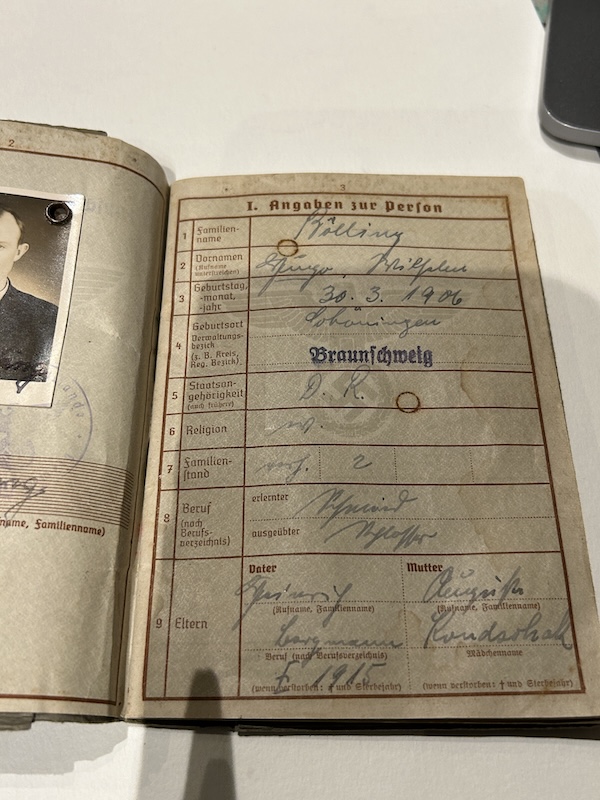 2
name, Familienname)
3
I. Angaben zur Person
1 Familien-
name
Bölling
2 Vornamen
(Rufname
unterstreichen)
Hugo Wilhelm
3 Geburtstag,
-monat,
-jahr
30. 3. 1906
4 Geburtsort
Verwaltungs-
bezirk
(z. B. Kreis,
Reg. Bezirk)
Schöningen
Braunschweig
5 Staatsan-
gehörigkeit
(auch frühere)
D. R.
6 Religion
7 Familien-
stand
verh. 2
8 Beruf
(nach
Berufs-
verzeichnis)
erlernter
Schmied
ausgeübter
Schlosser
9 Eltern
Vater
Heinrich
(Rufname, Familienname)
Bergmann
Beruf (nach Berufsverzeichnis)
† 1915
(wenn verstorben: † und Sterbejahr)
Mutter
Auguste
(Rufname, Familienname)
Mädchenname
(wenn verstorben: † und Sterbejahr)